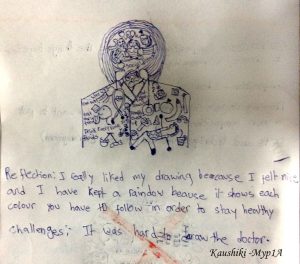 Reflection: I really liked my drawing beacause I felt nice
and I have kept a rainbow beause it shows each
colour you have to follow in order to stay healthy
challenges: It was hard to draw the doctor.
Kaushiki -Myp1A